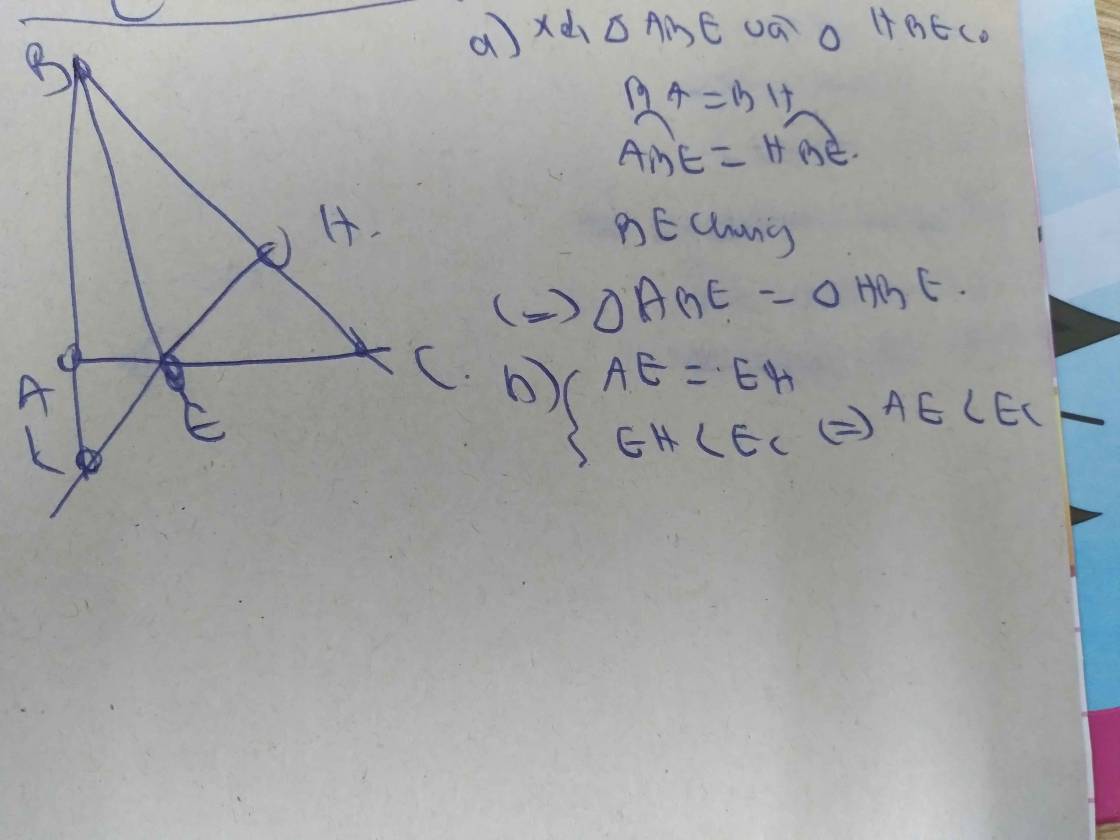 a) xét Δ ABE và Δ HBE có
BA = BH
ABE = HBE.
BE chung
(=) Δ ABE = Δ HBE.
b) { AE = EH
EH < EC (=) AE < EC
B
H.
A
C.
E